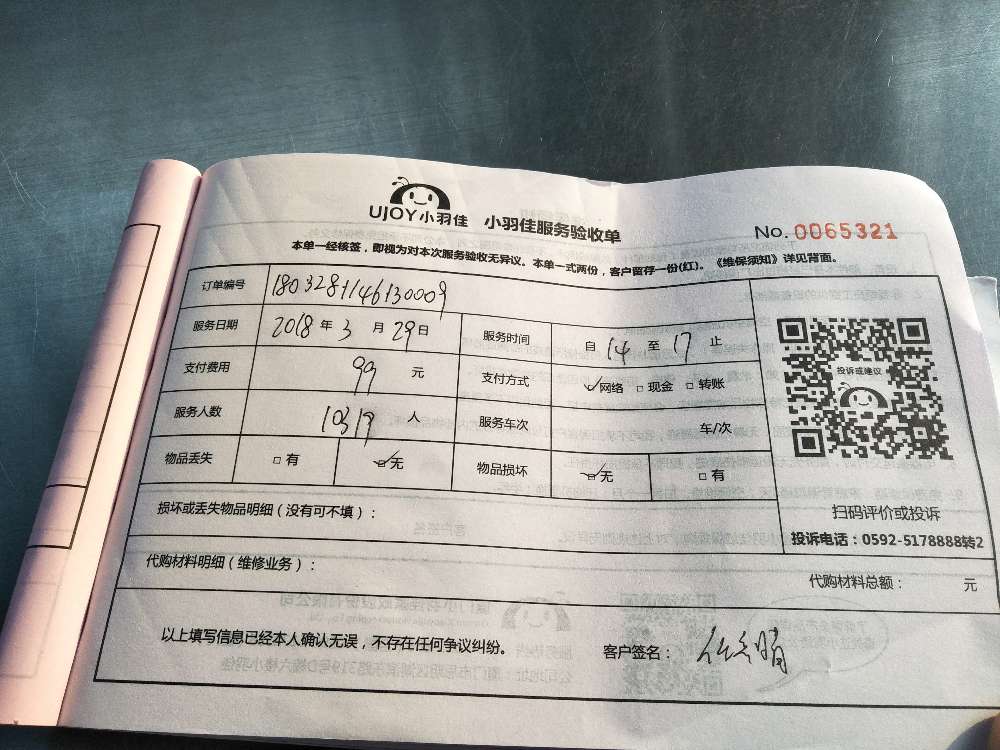 UJOY小羽佳 小羽佳服务验收单
No. 0065321
本单一经核签，即视为对本次服务验收无异议。本单一式两份，客户留存一份(红)。《维保须知》详见背面。
订单编号 1803281146130009
服务日期 2018 年 3 月 29 日 服务时间 自 14 至 17 止
支付费用 99 元 支付方式 ☑网络 □现金 □转账
服务人数 10319 人 服务车次 车/次
物品丢失 □有 ☑无 物品损坏 ☑无 □有
投诉或建议
扫码评价或投诉
投诉电话：0592-5178888转2
损坏或丢失物品明细（没有可不填）：
代购材料明细（维修业务）：
代购材料总额： 元
以上填写信息已经本人确认无误，不存在任何争议纠纷。 客户签名：